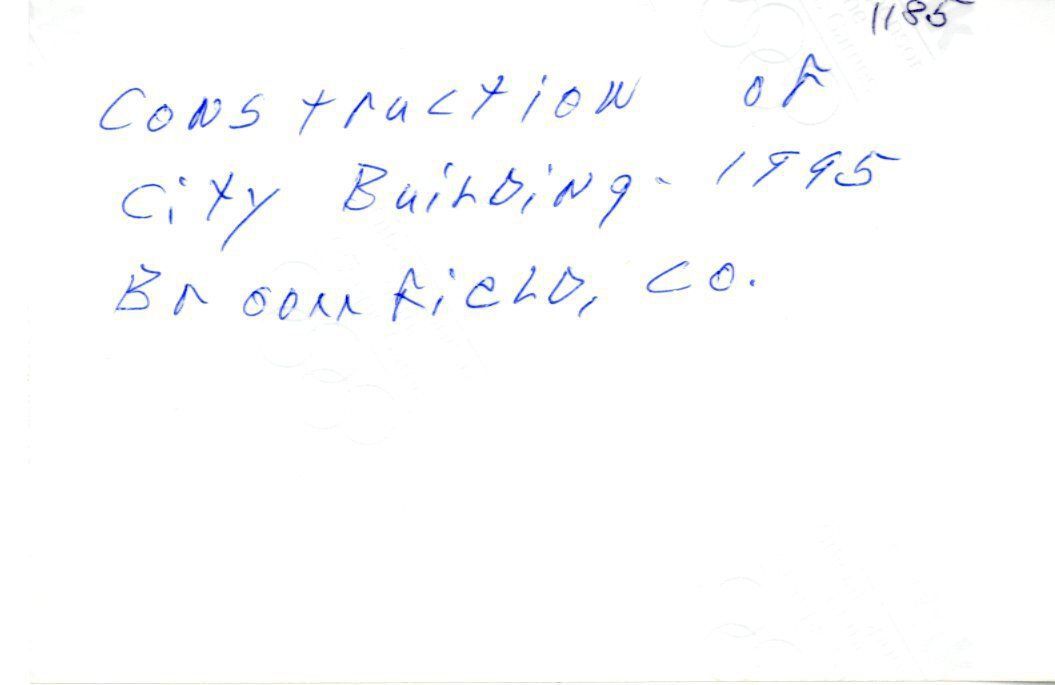 1185
Construction of
City Building - 1995
Broomfield, CO.